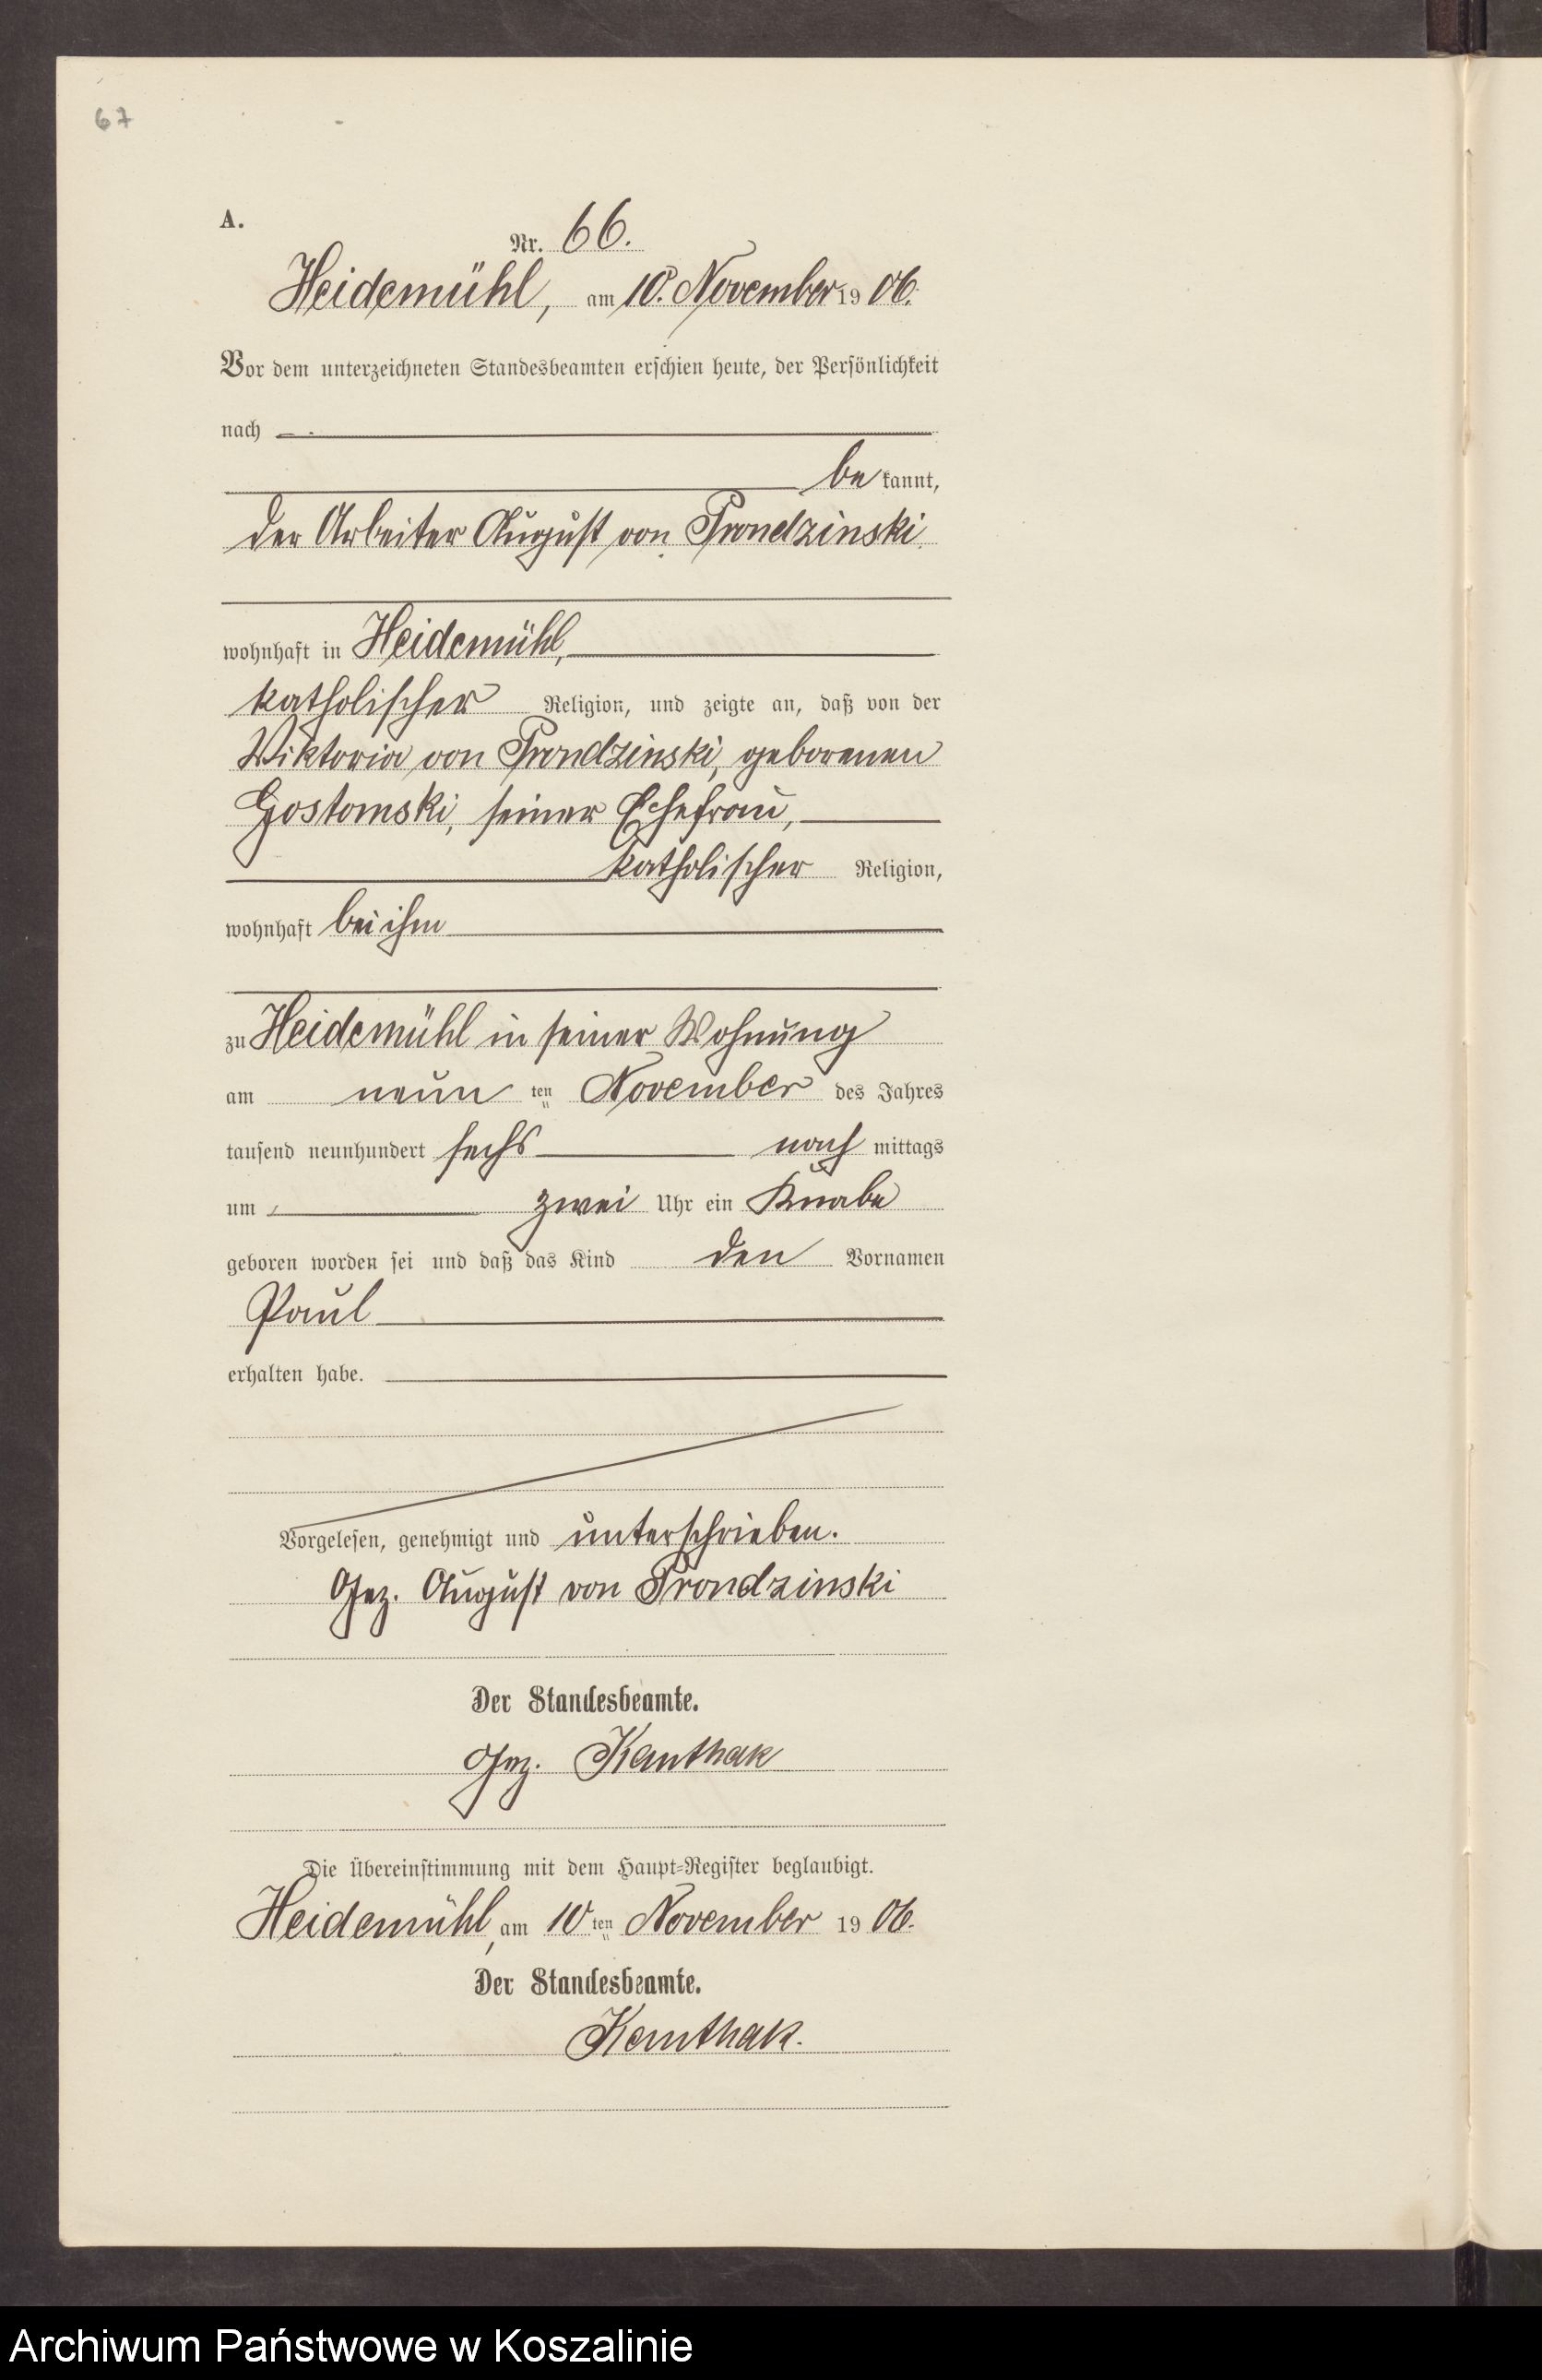 67
A.
Nr. 66.
Heidemühl, am 10. November 1906.
Vor dem unterzeichneten Standesbeamten erschien heute, der Persönlichkeit
nach
be kannt,
der Arbeiter August von Prondzinski
wohnhaft in Heidemühl,
katholischer Religion, und zeigte an, daß von der
Viktoria von Prondzinski, geborenen
Gostomski, seiner Ehefrau,
katholischer Religion,
wohnhaft bei ihm
zu Heidemühl in seiner Wohnung
am neun ten November des Jahres
tausend neunhundert sechs nach mittags
um zwei Uhr ein Knabe
geboren worden sei und daß das Kind den Vornamen
Paul
erhalten habe.
Vorgelesen, genehmigt und unterschrieben.
Gez. August von Prondzinski
Der Standesbeamte.
Gez. Kanthak
Die Übereinstimmung mit dem Haupt-Register beglaubigt.
Heidemühl, am 10 ten November 1906.
Der Standesbeamte.
Kanthak.
Archiwum Państwowe w Koszalinie